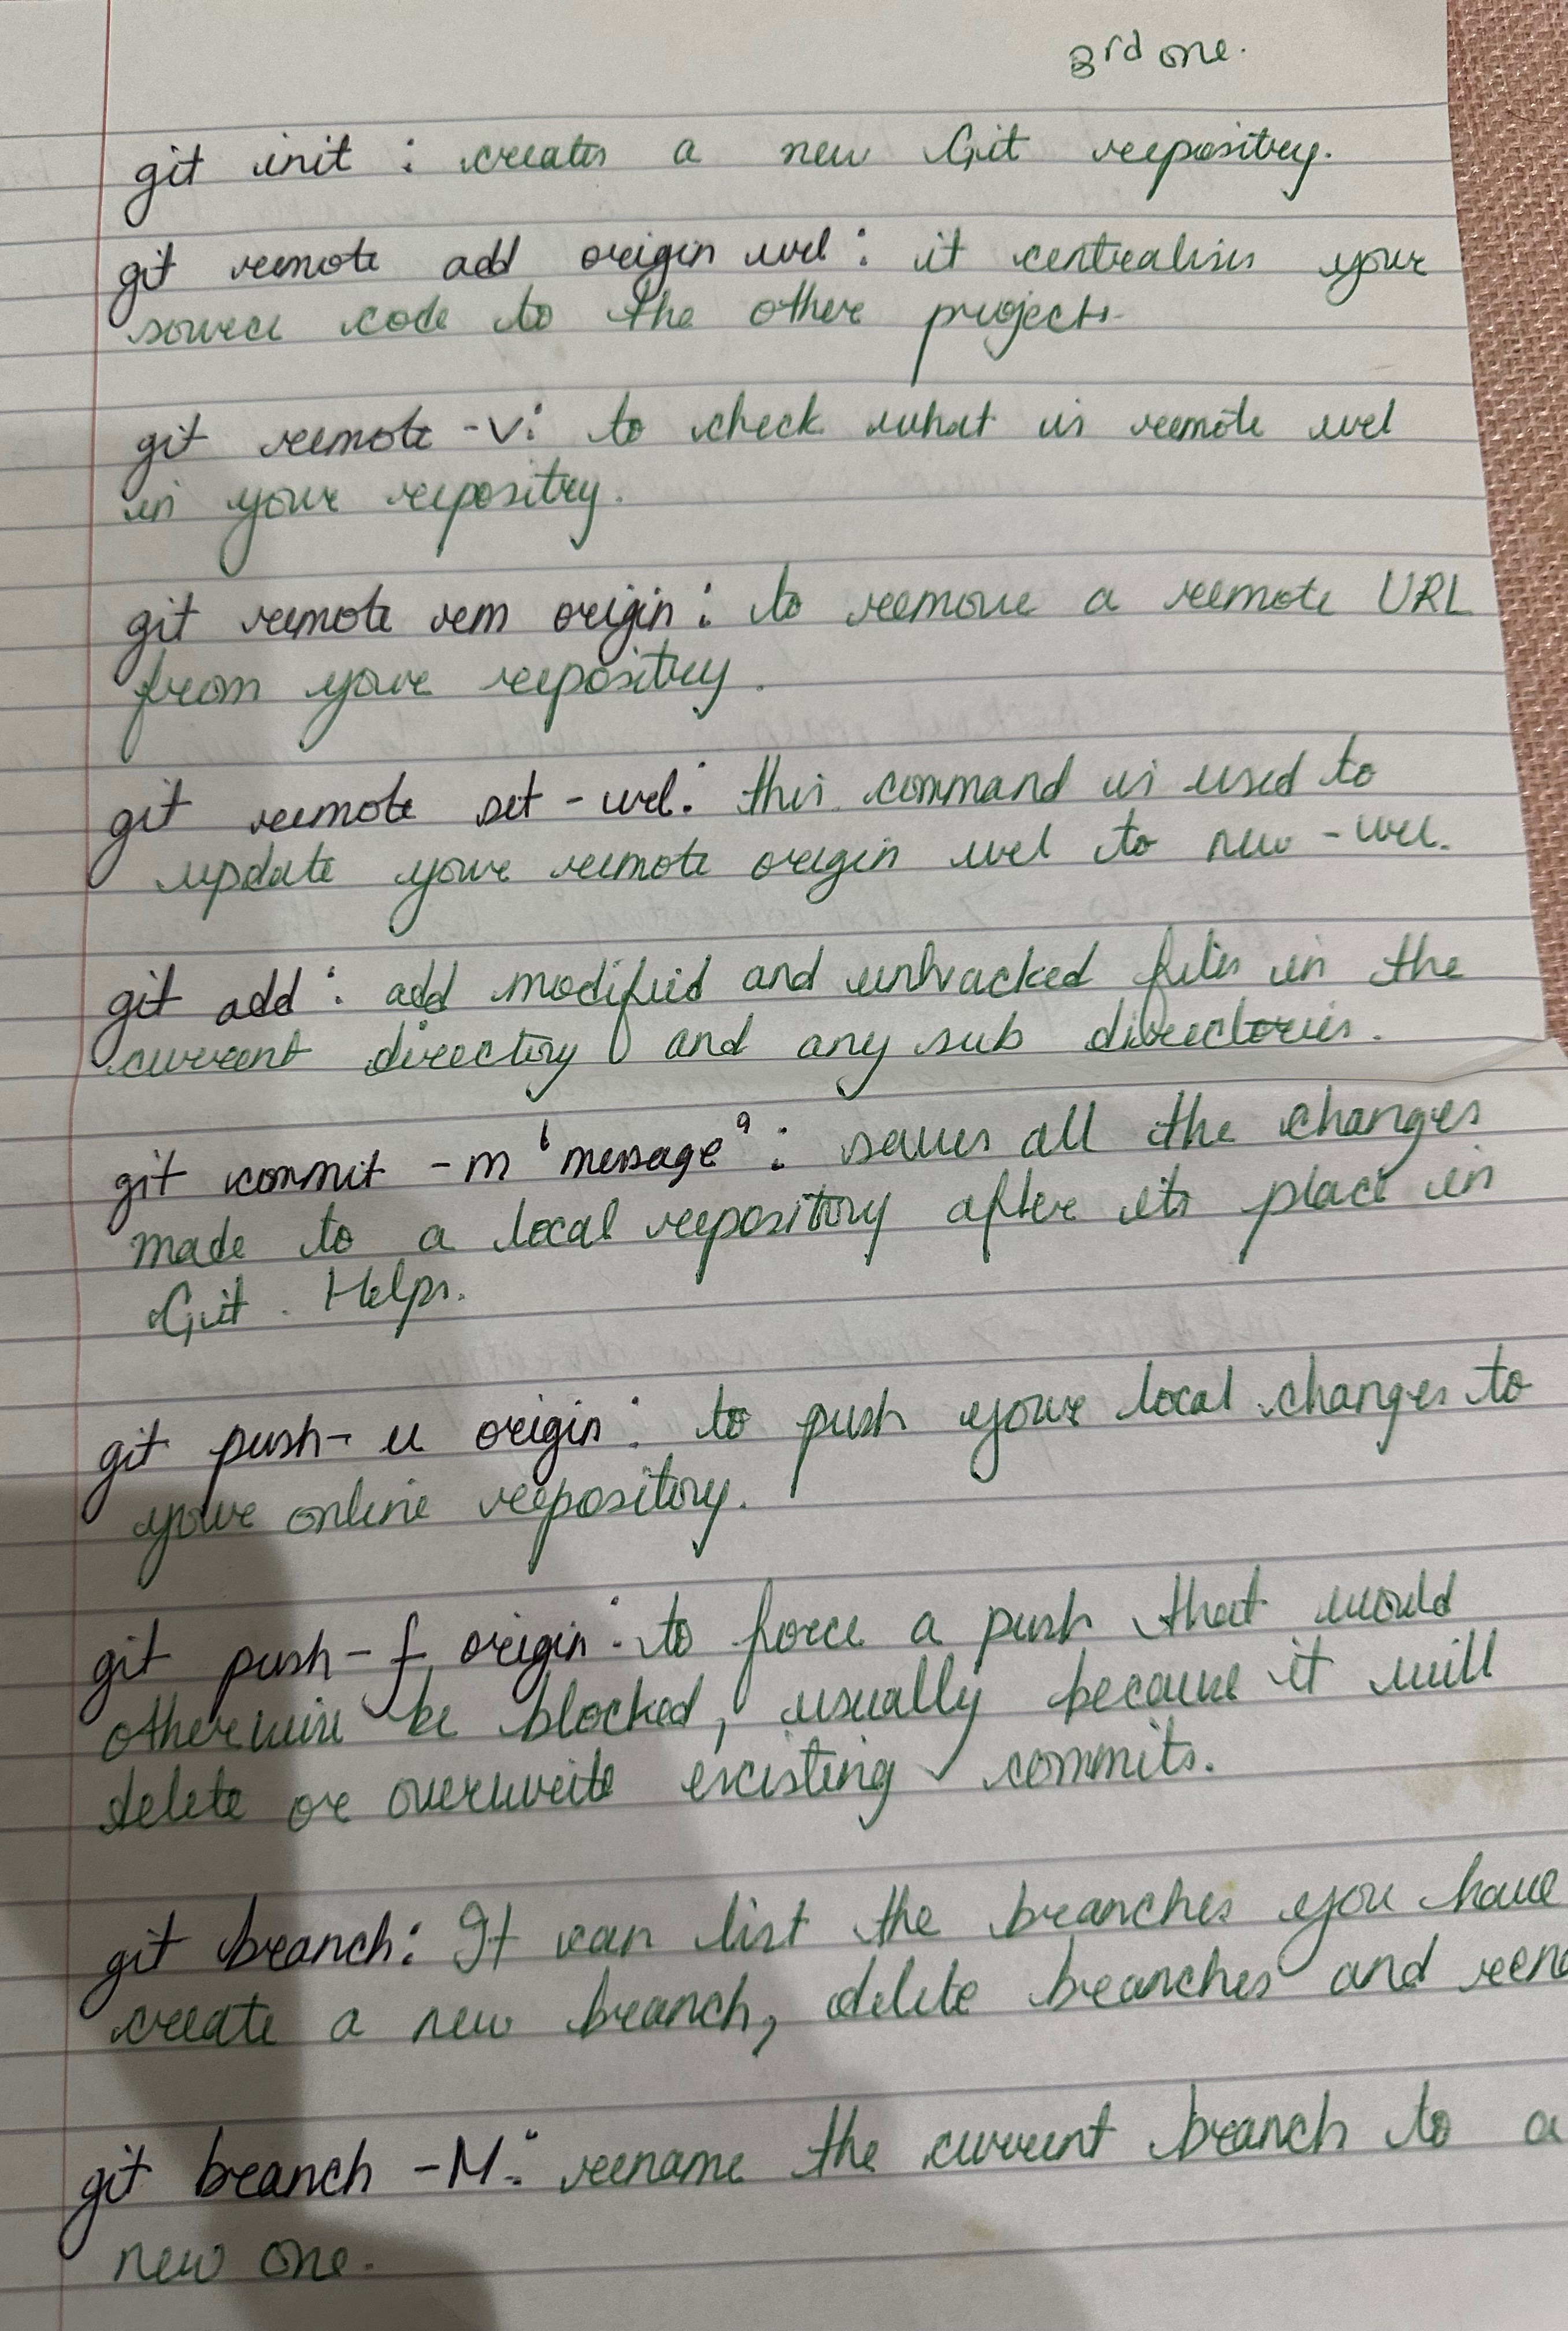 3rd one.
git init : creates a new Git repositry.
git remote add origin url : it centralises your
source code to the other projects.
git remote -v : to check what is remote url
in your repositry.
git remote rem origin : to remove a remote URL
from your repositry.
git remote set - url : this command is used to
update your remote origin url to new - url.
git add : add modified and untracked files in the
current directory and any sub directories.
git commit -m 'message' : saves all the changes
made to a local repository after its place in
Git . Helps.
git push - u origin : to push your local changes to
your online repository.
git push - f origin : to force a push that would
otherwise be blocked, usually because it will
delete or overwrite existing commits.
git branch : It can list the branches you have
create a new branch, delete branches and
git branch -M : rename the current branch to a
new one.